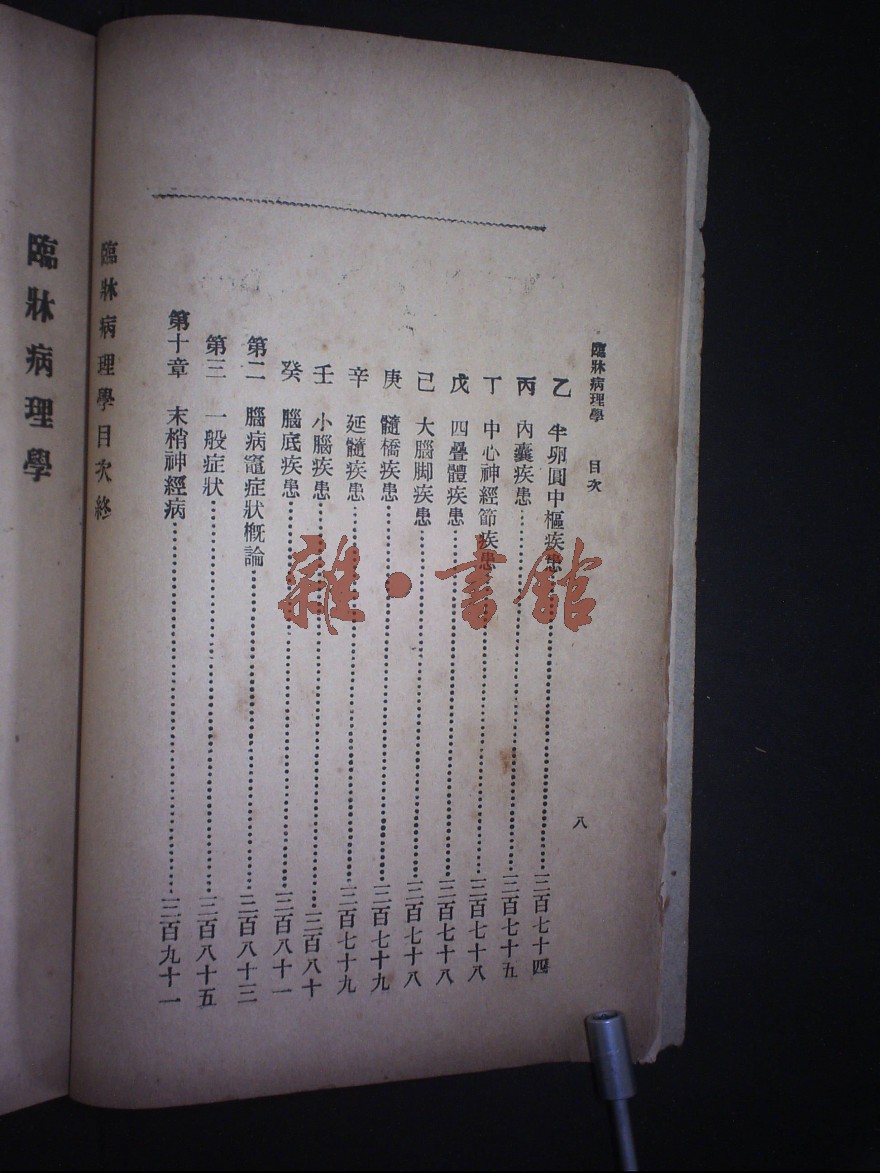 臨牀病理學 目次
八
乙 半卵圓中樞疾患…………三百七十四
丙 內囊疾患…………三百七十五
丁 中心神經節疾患…………三百七十八
戊 四疊體疾患…………三百七十八
己 大腦脚疾患…………三百七十八
庚 髓橋疾患…………三百七十九
辛 延髓疾患…………三百七十九
壬 小腦疾患…………三百八十
癸 腦底疾患…………三百八十一
第二 腦病竈症狀概論…………三百八十三
第三 一般症狀…………三百八十五
第十章 末梢神經病…………三百九十一
臨牀病理學目次終
臨牀病理學
雜·書館